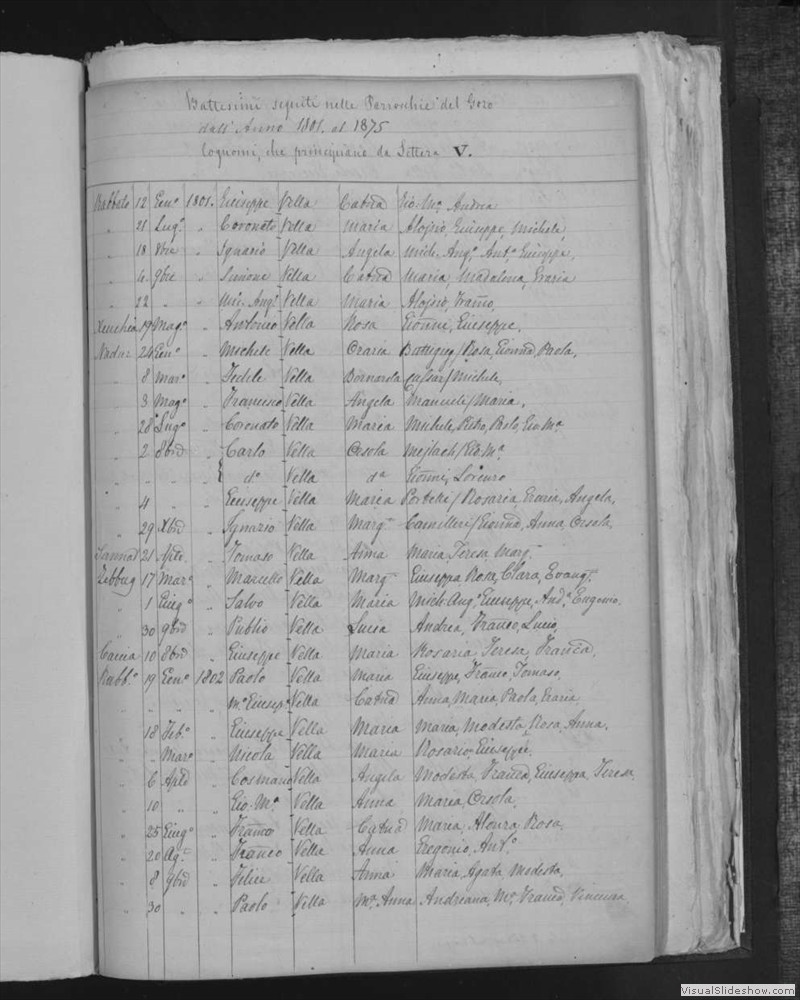 Battesimi seguiti nelle Parrochie del Gozo
dall' Anno 1801. al 1875
Cognomi, che principiano da Lettera V.
Rabbato 12 Genº 1801. Giuseppe Vella Catnd Gio Mª Andrea
" 21 Lugº " Coronato Vella Maria Aloisio, Giuseppe, Michele,
" 18 8bre " Ignazio Vella Angela Mich. Angº Antº Giuseppe,
" 6 9bre " Simone Vella Catnd Maria, Madalena, Grazia
" 22 " " Mic. Angº Vella Maria Aloisio, Franco,
Xeuchia 19 Magº " Antonio Vella Rosa Gionni, Giuseppe,
Nadur 24 Genº " Michele Vella Grazia Buttigieg / Rosa, Gionnd, Paola,
" 8 Marº " Fedele Vella Bornarda Cassar / Michele,
" 3 Magº " Francesco Vella Angela Emanuele / Maria,
" 28 Lugº " Coronato Vella Maria Michele, Pietro, Paolo, Gio Mª
" 2 8brd " Carlo Vella Orsola Mejlach / Gio Mª
" " " " dº Vella da Gionni, Lorenzo
" 4 " " Giuseppe Vella Maria Portelli / Rosaria, Grazia, Angela,
" 29 Xbrd " Ignazio Vella Marg. Camilleri / Gionnd, Anna, Orsola,
Sannat 21 Aple " Tomaso Vella Anna Maria, Teresa, Marg.
Zebbug 17 Marº " Marcello Vella Marg. Giuseppa Rosa, Clara, Evang.
" 1 Giugº " Salvo Vella Maria Mich Angº Giuseppe, Andª Eugenio.
" 30 9brd " Publio Vella Lucia Andrea, Franco, Lucio,
Caccia 10 8brd " Giuseppe Vella Maria Rosaria, Teresa, Francd,
Rabbº 19 Genº 1802 Paolo Vella Maria Giuseppe, Franco, Tomaso,
" " " " Mª Giusepº Vella Catnd Anna, Maria, Paola, Grazia
" 18 Febº " Giuseppe Vella Maria Maria, Modesta, Rosa, Anna,
" " Marº " Nicola Vella Maria Rosario Giuseppe,
" 6 Aple " Cosmano Vella Angela Modesta, Francd, Giuseppa, Teresa
" 10 " " Gio. Mª Vella Anna Maria, Orsola,
" 25 Giugº " Franco Vella Catnd Maria, Rosa,
" 20 Agº " Franco Vella Anna Gregorio, Antº
" 8 9brd " Felice Vella Anna Maria, Agata, Modesta,
" 30 " " Paolo Vella Mª Anna Andreana, Mª Francd,
VisualSlideshow.com